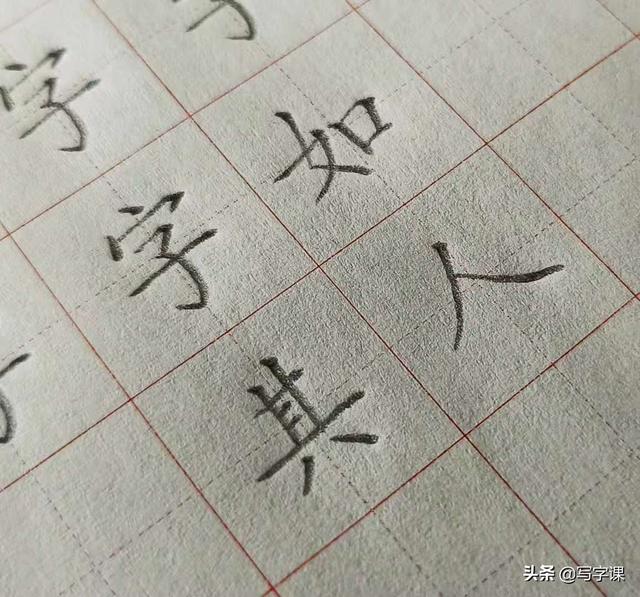 字
字如
其人
头条 @写字课